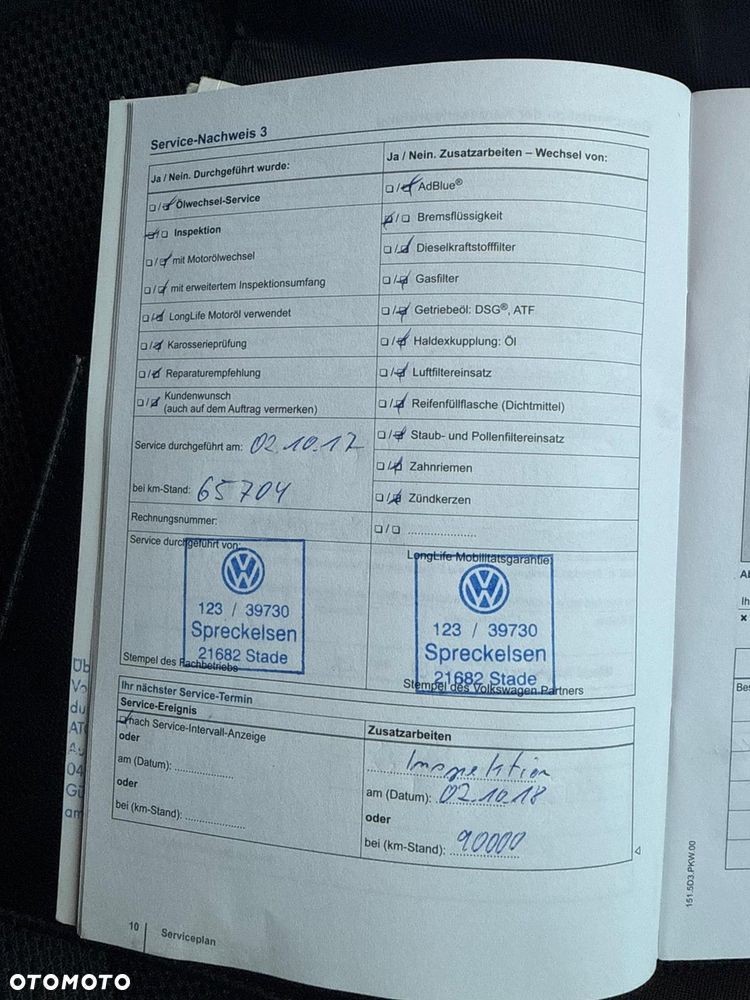 Service-Nachweis 3
Ja / Nein. Durchgeführt wurde:
Ölwechsel-Service
Inspektion
mit Motorölwechsel
mit erweitertem Inspektionsumfang
LongLife Motoröl verwendet
Karosserieprüfung
Reparaturempfehlung
Kundenwunsch
(auch auf dem Auftrag vermerken)
Service durchgeführt am: 02.10.17
bei km-Stand: 65704
Rechnungsnummer:
Service durchgeführt von:
VW
123 / 39730
Spreckelsen
21682 Stade
Stempel des Fachbetriebs
Ja / Nein. Zusatzarbeiten – Wechsel von:
AdBlue®
Bremsflüssigkeit
Dieselkraftstofffilter
Gasfilter
Getriebeöl: DSG®, ATF
Haldexkupplung: Öl
Luftfiltereinsatz
Reifenfüllflasche (Dichtmittel)
Staub- und Pollenfiltereinsatz
Zahnriemen
Zündkerzen
LongLife Mobilitätsgarantie
VW
123 / 39730
Spreckelsen
21682 Stade
Stempel des Volkswagen Partners
Ihr nächster Service-Termin
Service-Ereignis
nach Service-Intervall-Anzeige
oder
am (Datum):
oder
bei (km-Stand):
Zusatzarbeiten
Inspektion
am (Datum): 02.10.18
oder
bei (km-Stand): 90000
10 Serviceplan
151.5D3.PKW.00
OTOMOTO